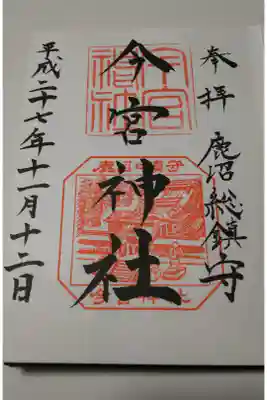 奉拝
鹿沼総鎮守
今宮神社
平成二十七年十一月十二日